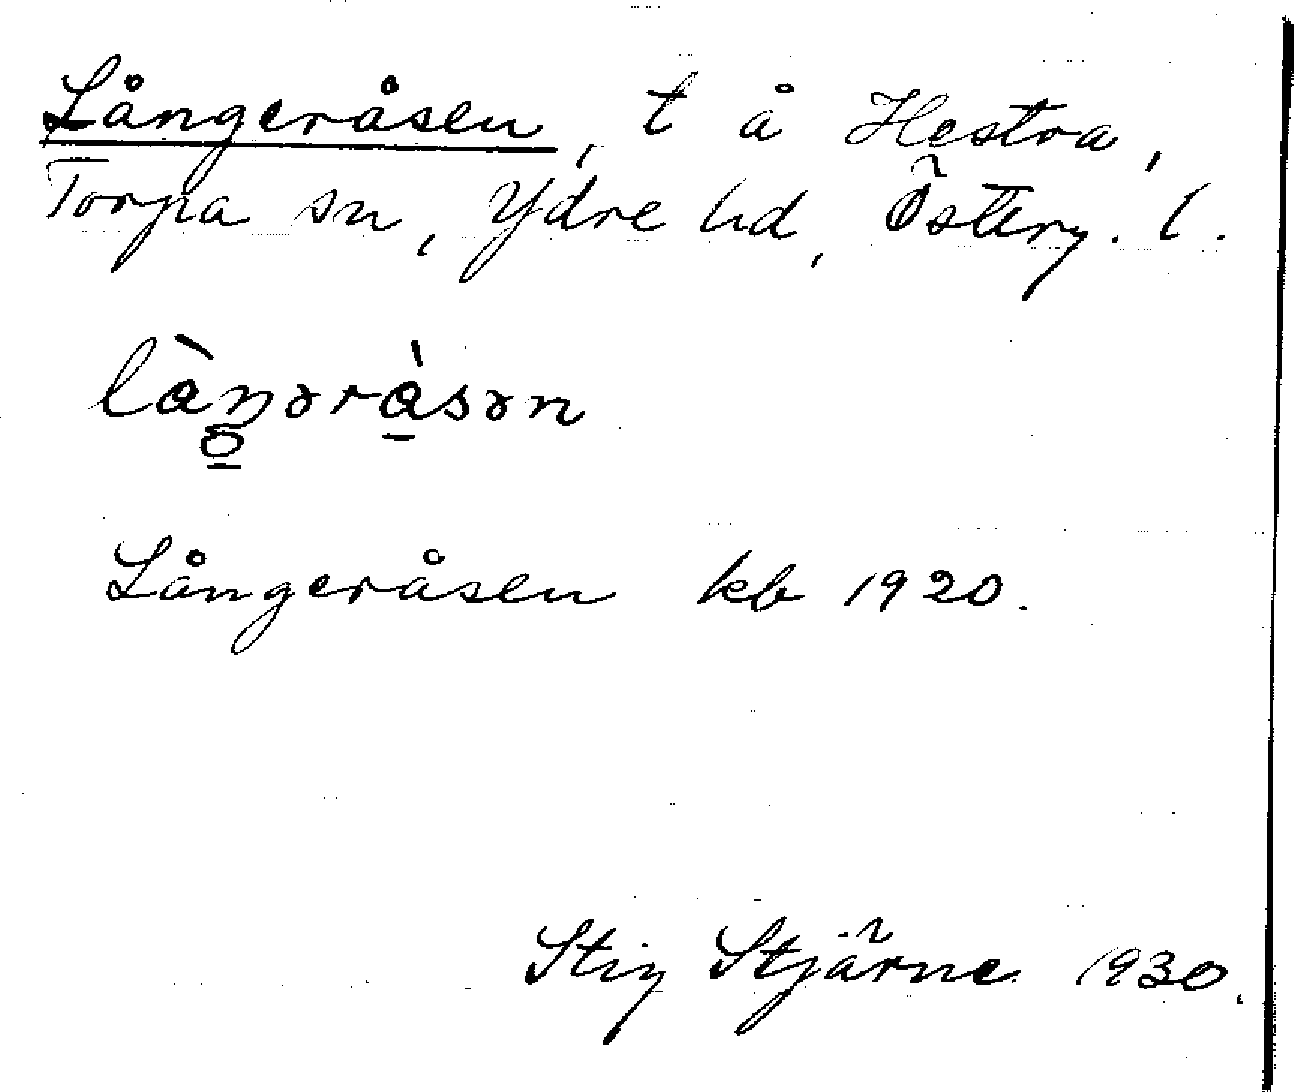 Långeråsen, t å Hestra,
Torpa sn, Ydre hd, Österg. l.
là̱ŋərà̱sən
o̱
Långeråsen kb 1920.
Stig Stjärne 1930.